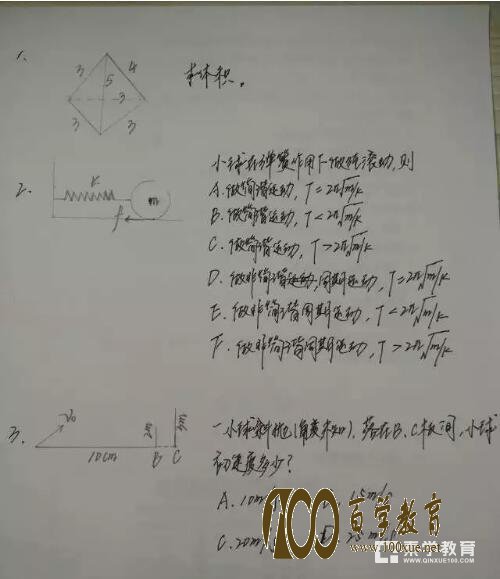 1.
3
4
5
3
3
3
求体积。
2.
K
m
f
小球在弹簧作用下做纯滚动,则
A.做简谐运动, T=2π√m/k
B.做简谐运动, T<2π√m/k
C.做简谐运动, T>2π√m/k
D.做非简谐运动,周期运动, T=2π√m/k
E.做非简谐周期运动, T<2π√m/k
F.做非简谐周期运动, T>2π√m/k
3.
V₀
10cm
B
C
2m
3m
一小球斜抛(角度未知),落在B、C板间,小球
初速度多少?
A.10m/s
15m/s
C.20m/s
D 25m/s
100
百学教育
www.100xue.net
亲学教育
WWW.QINXUE100.COM